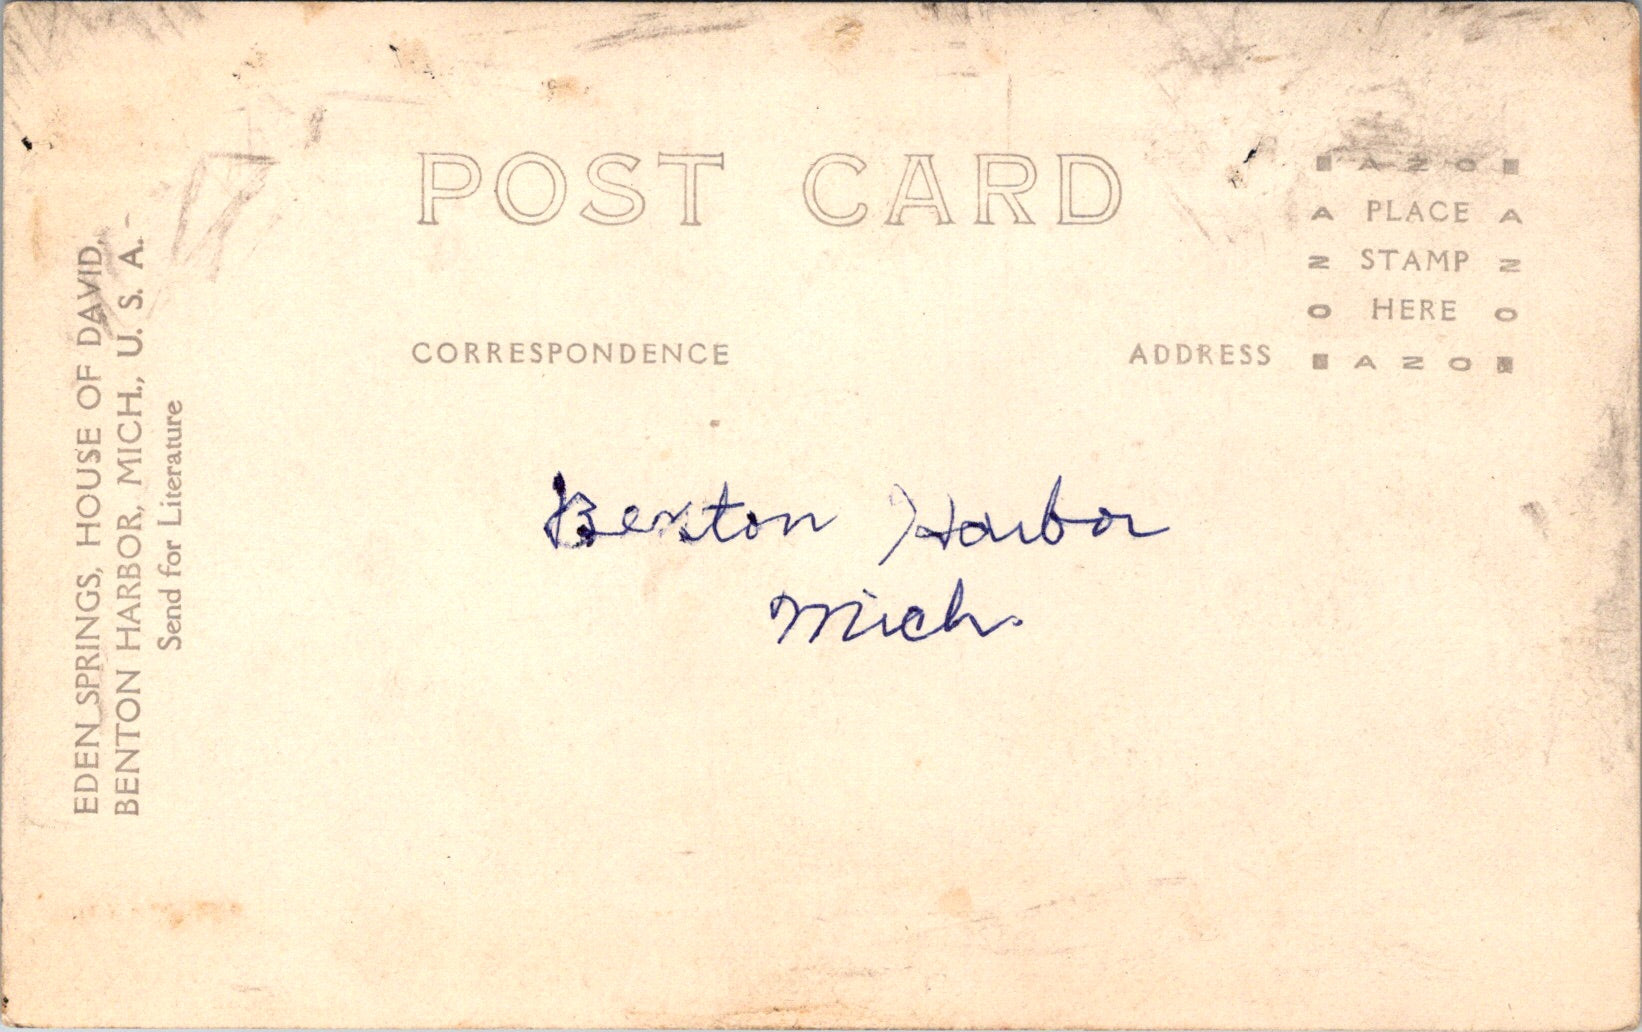 POST CARD
CORRESPONDENCE
ADDRESS
AZO
A PLACE A
Z STAMP Z
O HERE O
AZO
EDEN SPRINGS, HOUSE OF DAVID,
BENTON HARBOR, MICH., U. S. A.
Send for Literature
Benton Harbor
Mich.